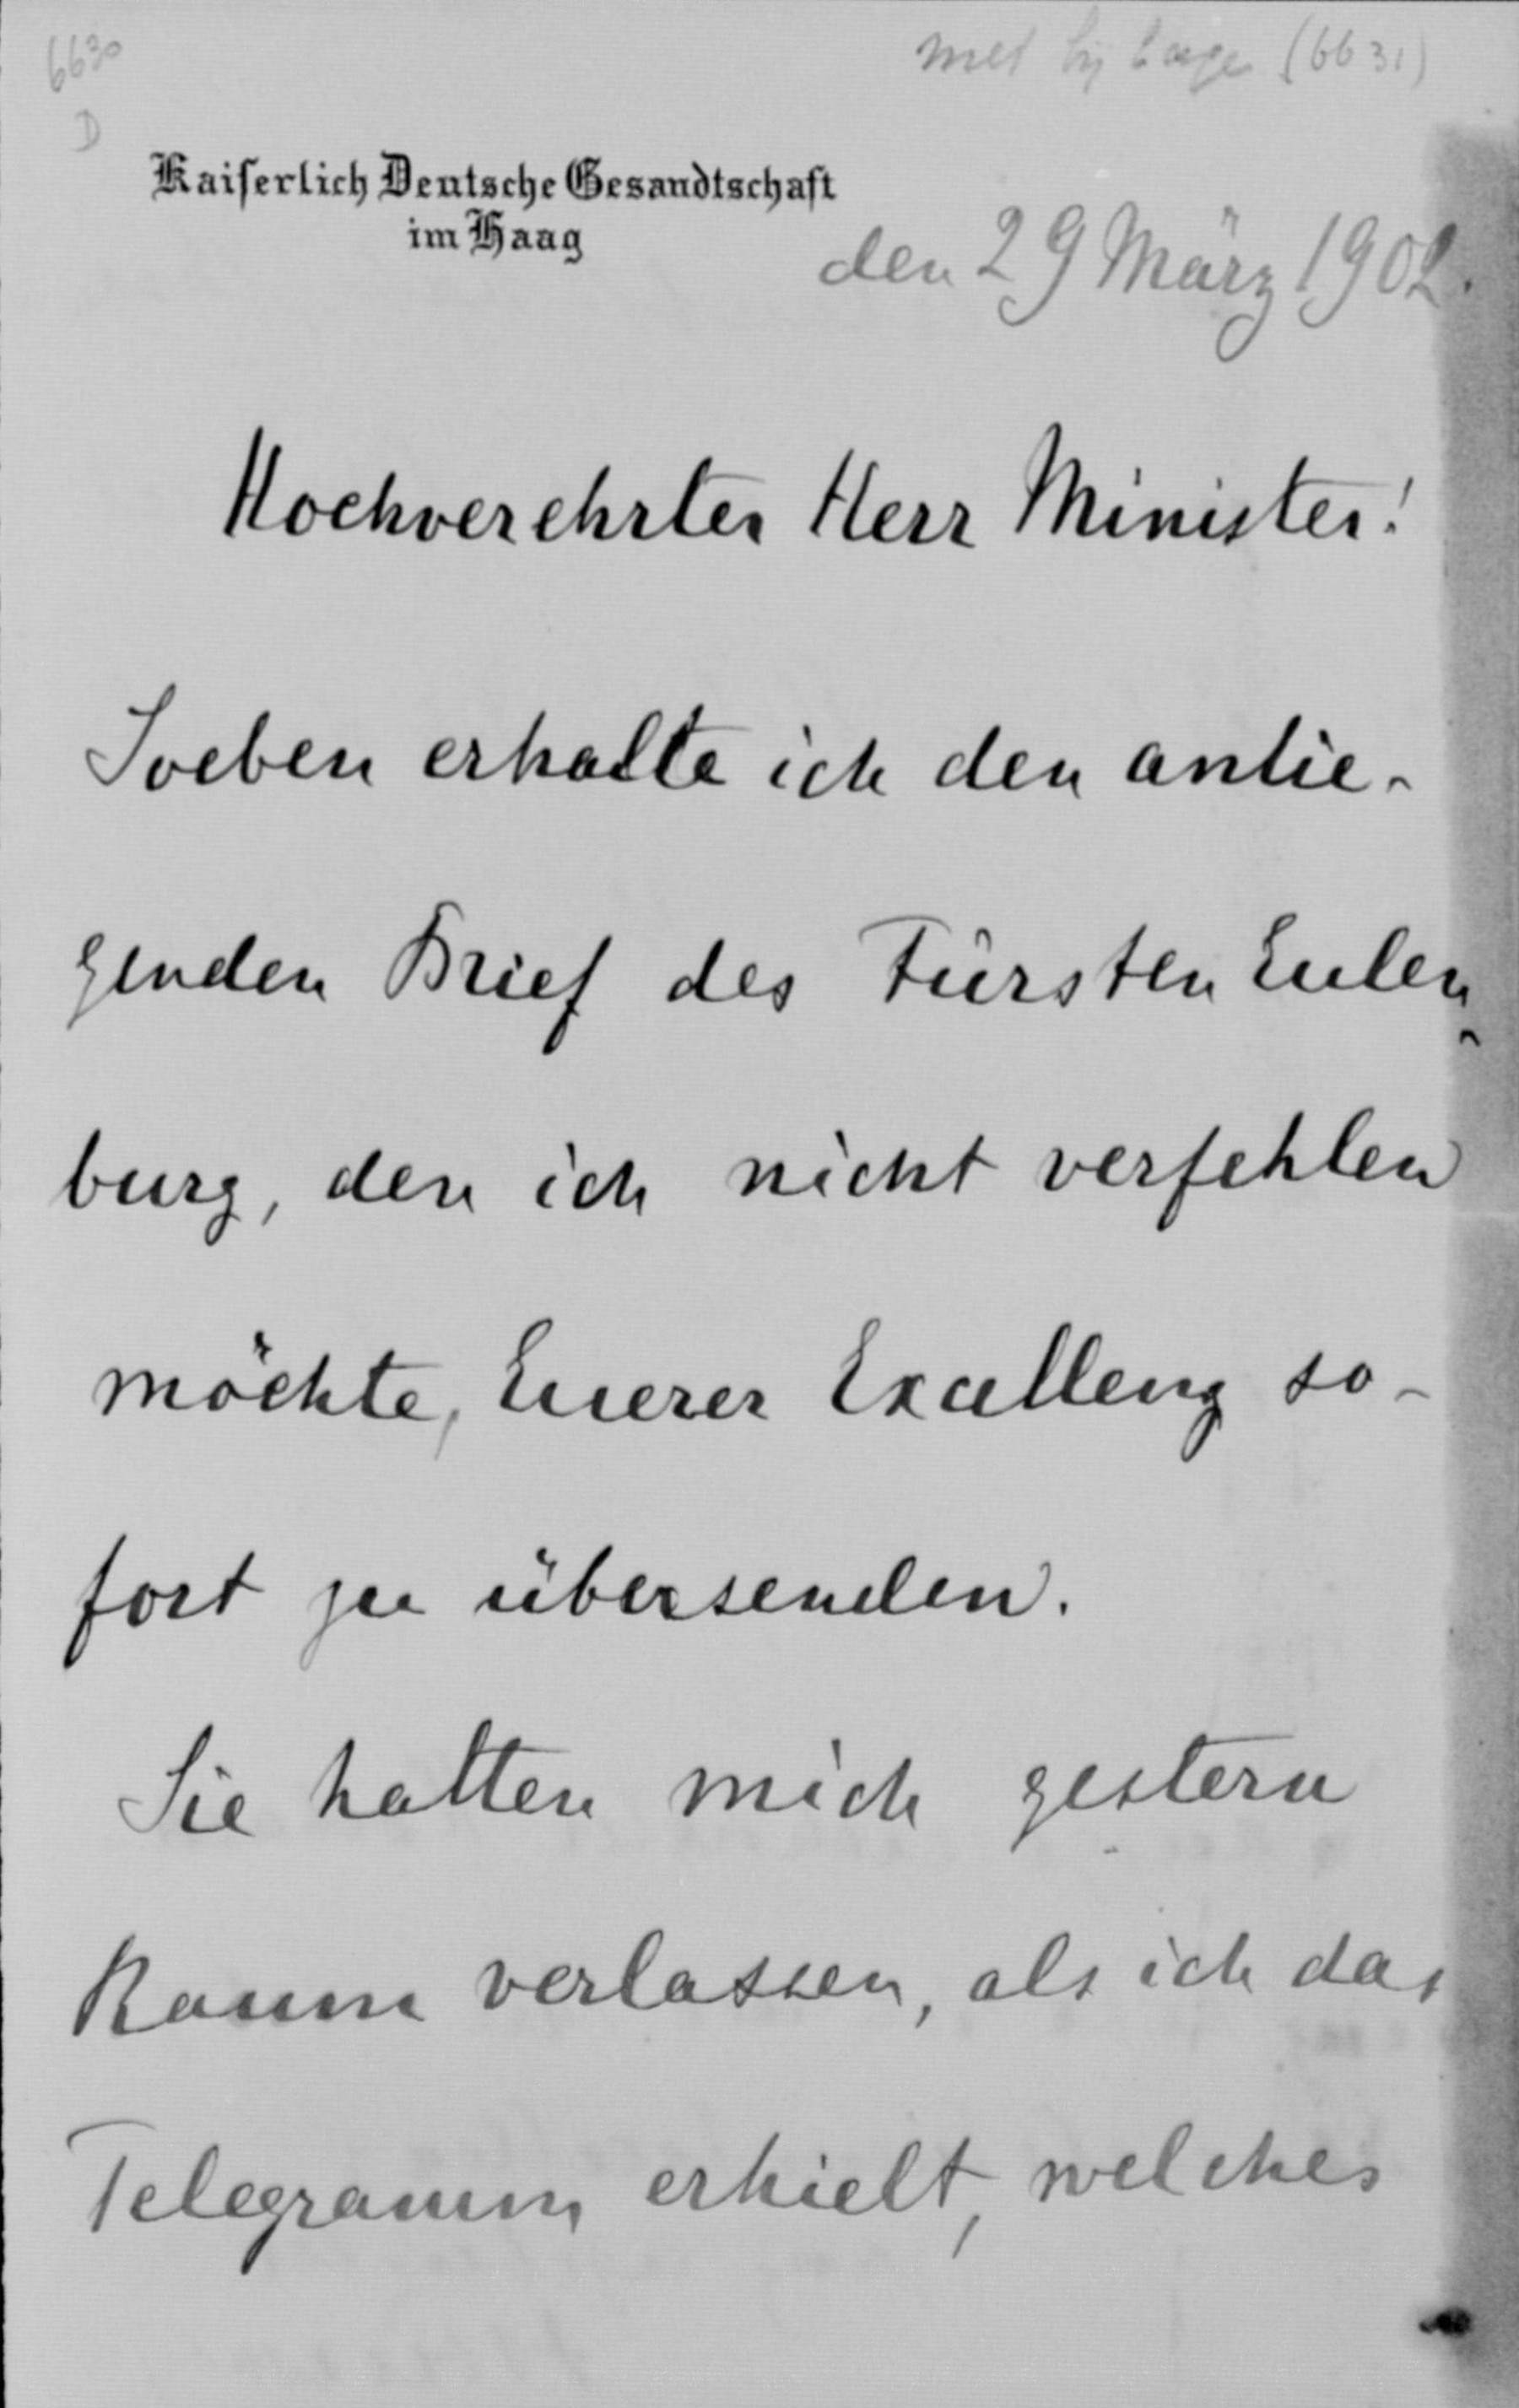 6630
met bijlage (6631)
D
Kaiserlich Deutsche Gesandtschaft
im Haag
den 29 März 1902.
Hochverehrter Herr Minister!
Soeben erhalte ich den anlie-
genden Brief des Fürsten Eulen-
burg, den ich nicht verfehlen
möchte, Euerer Excellenz so-
fort zu übersenden.
Sie hatten mich gestern
kaum verlassen, als ich das
Telegramm erhielt, welches